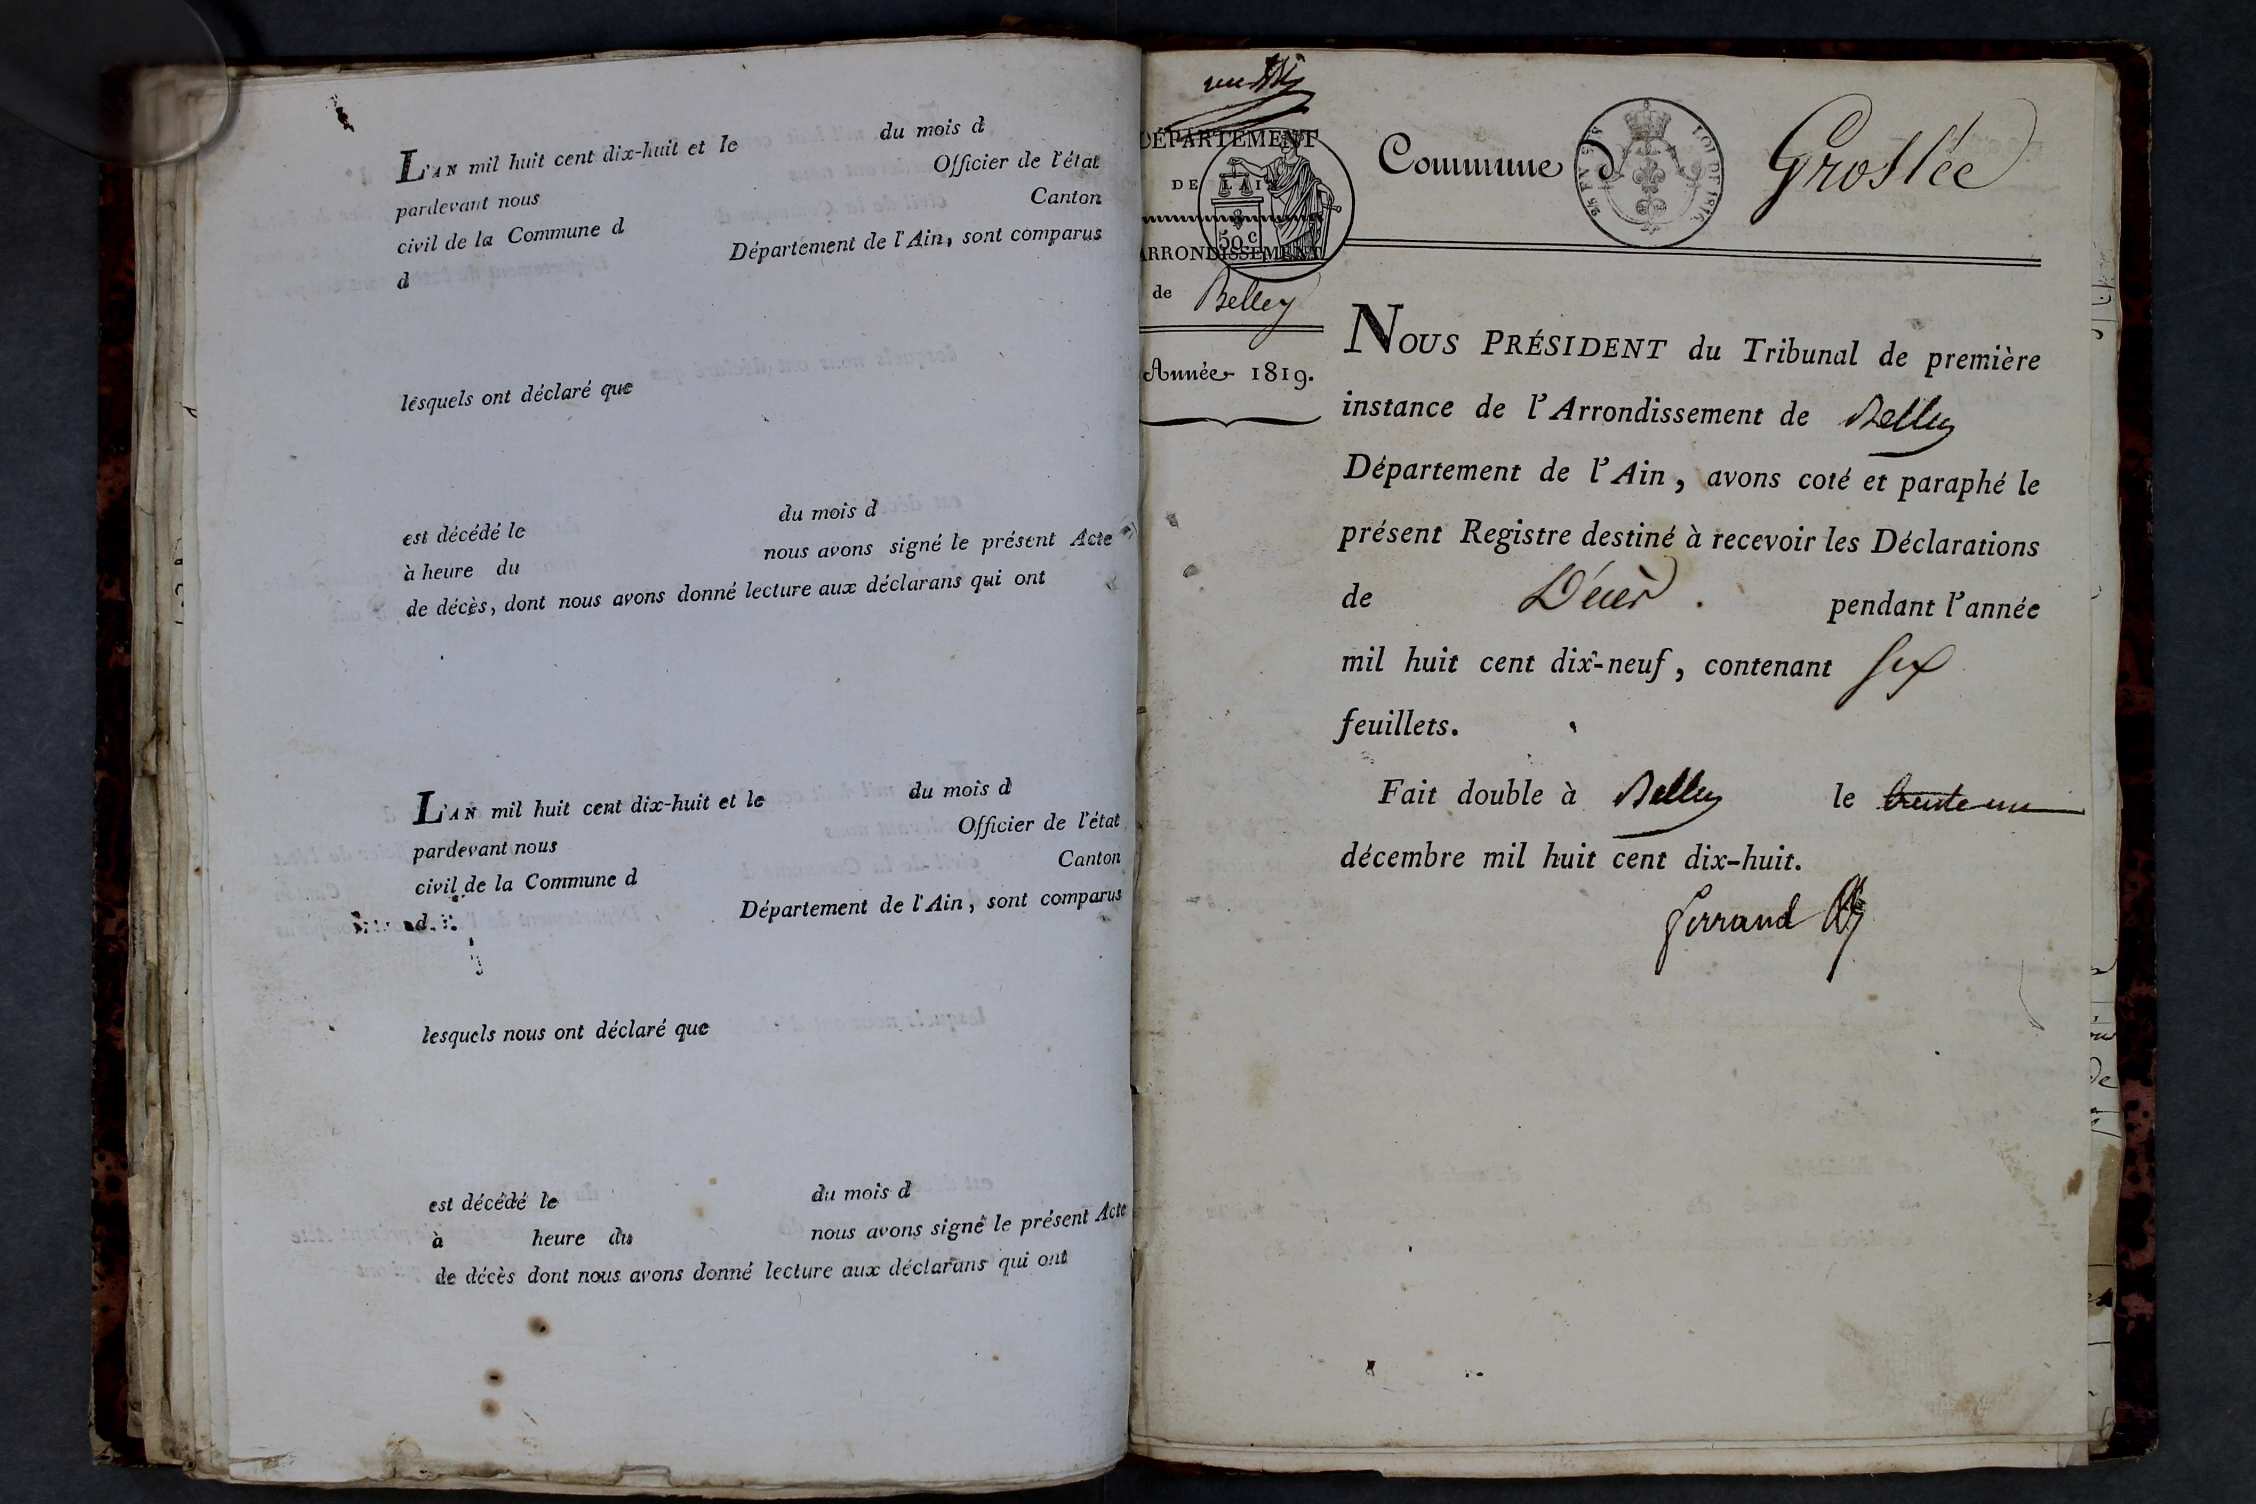 L'AN mil huit cent dix-huit et le du mois d
pardevant nous Officier de l'état
civil de la Commune d Canton
d Département de l'Ain, sont comparus
lesquels ont déclaré que
est décédé le du mois d
à heure du nous avons signé le présent Acte
de décès, dont nous avons donné lecture aux déclarans qui ont
L'AN mil huit cent dix-huit et le du mois d
pardevant nous Officier de l'état
civil de la Commune d Canton
d Département de l'Ain, sont comparus
lesquels nous ont déclaré que
est décédé le du mois d
à heure du nous avons signé le présent Acte
de décès dont nous avons donné lecture aux déclarans qui ont
DÉPARTEMENT
DE L'AIN
50 c
ARRONDISSEMENT
de Belley
Année 1819.
Commune d Groslée
LOI DE 1816
NOUS PRÉSIDENT du Tribunal de première
instance de l'Arrondissement de Belley
Département de l'Ain, avons coté et paraphé le
présent Registre destiné à recevoir les Déclarations
de Décès. pendant l'année
mil huit cent dix-neuf, contenant six
feuillets.
Fait double à Belley le trente un
décembre mil huit cent dix-huit.
Ferrand